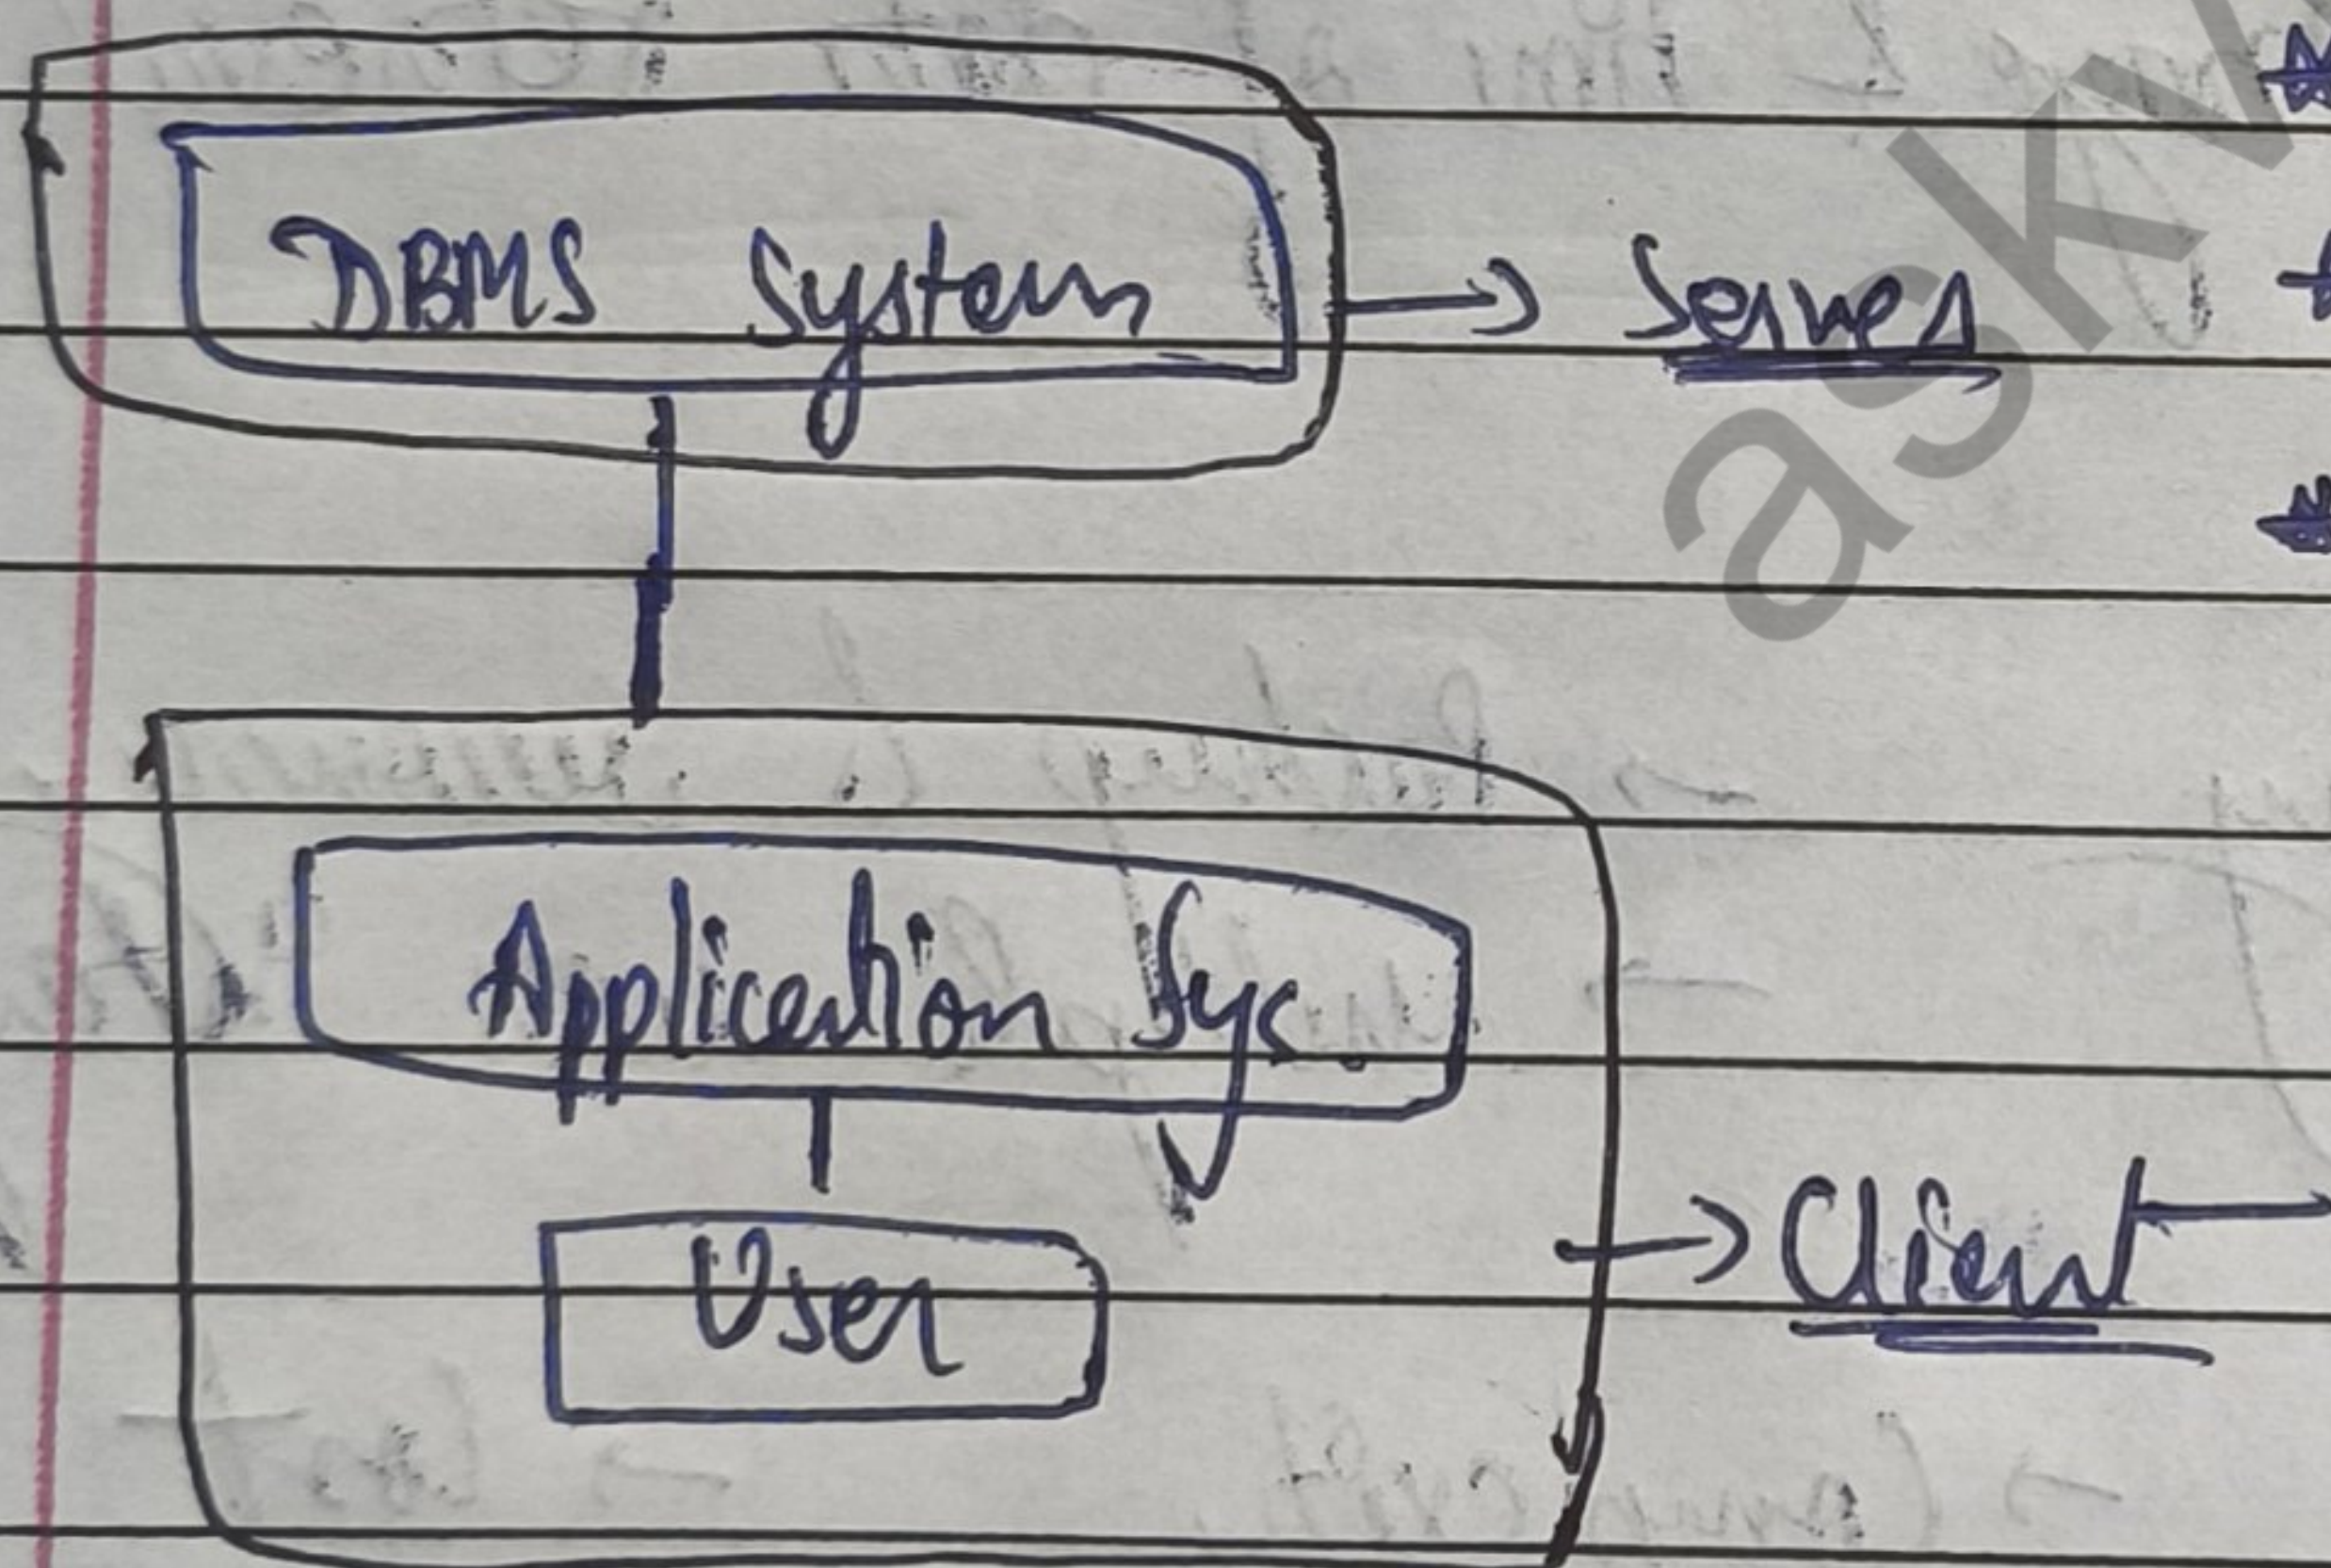 DBMS System → Server
Application Sys.
User
→ Client →
askv